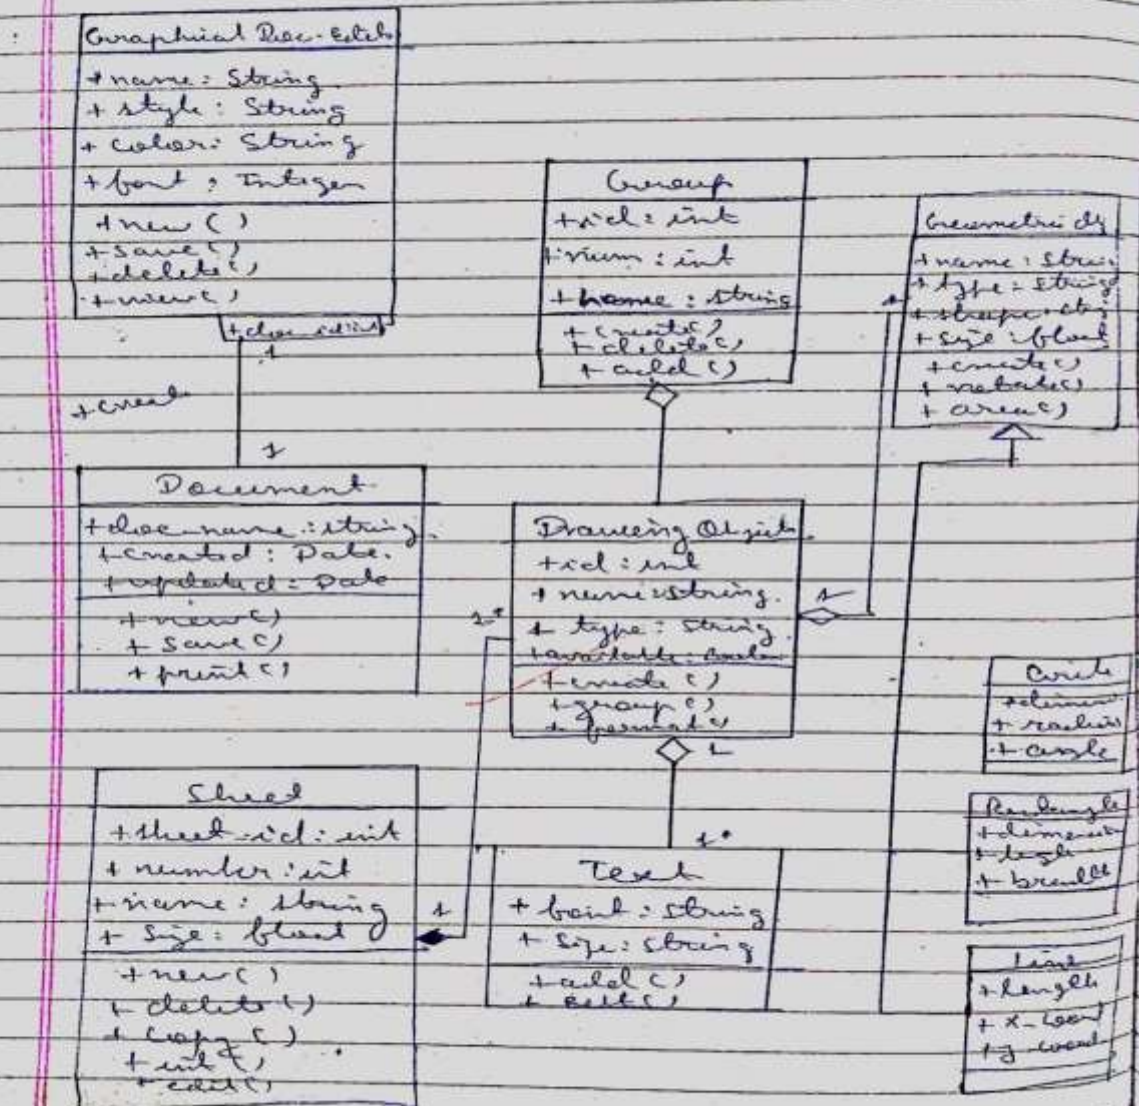 Graphical Doc-Edito
+ name : String
+ style : String
+ color : String
+ font : Integer
+ new ( )
+ save ( )
+ delete ( )
+ view ( )
1
+ creat
1
Document
+ doc_name : string
+ created : Date
+ updated : Date
+ new ( )
+ save ( )
+ print ( )
Sheet
+ sheet_id : int
+ number : int
+ name : string
+ size : float
+ new ( )
+ delete ( )
+ copy ( )
+ edit ( )
1
Group
+ id : int
+ num : int
+ name : string
+ create ( )
+ delete ( )
+ add ( )
Drawing Object
+ id : int
+ name : string
+ type : string
+ available :
+ create ( )
+ group ( )
1
1
1*
Text
+ font : string
+ size : string
+ add ( )
+ edit ( )
1
+ name : Strin
+ type : string
+ size : float
+ create ( )
+ rotate ( )
+ area ( )
Circle
+ radius
+ angle
Rectangle
+ breadth
Line
+ length
+ x-coord
+ y-coord